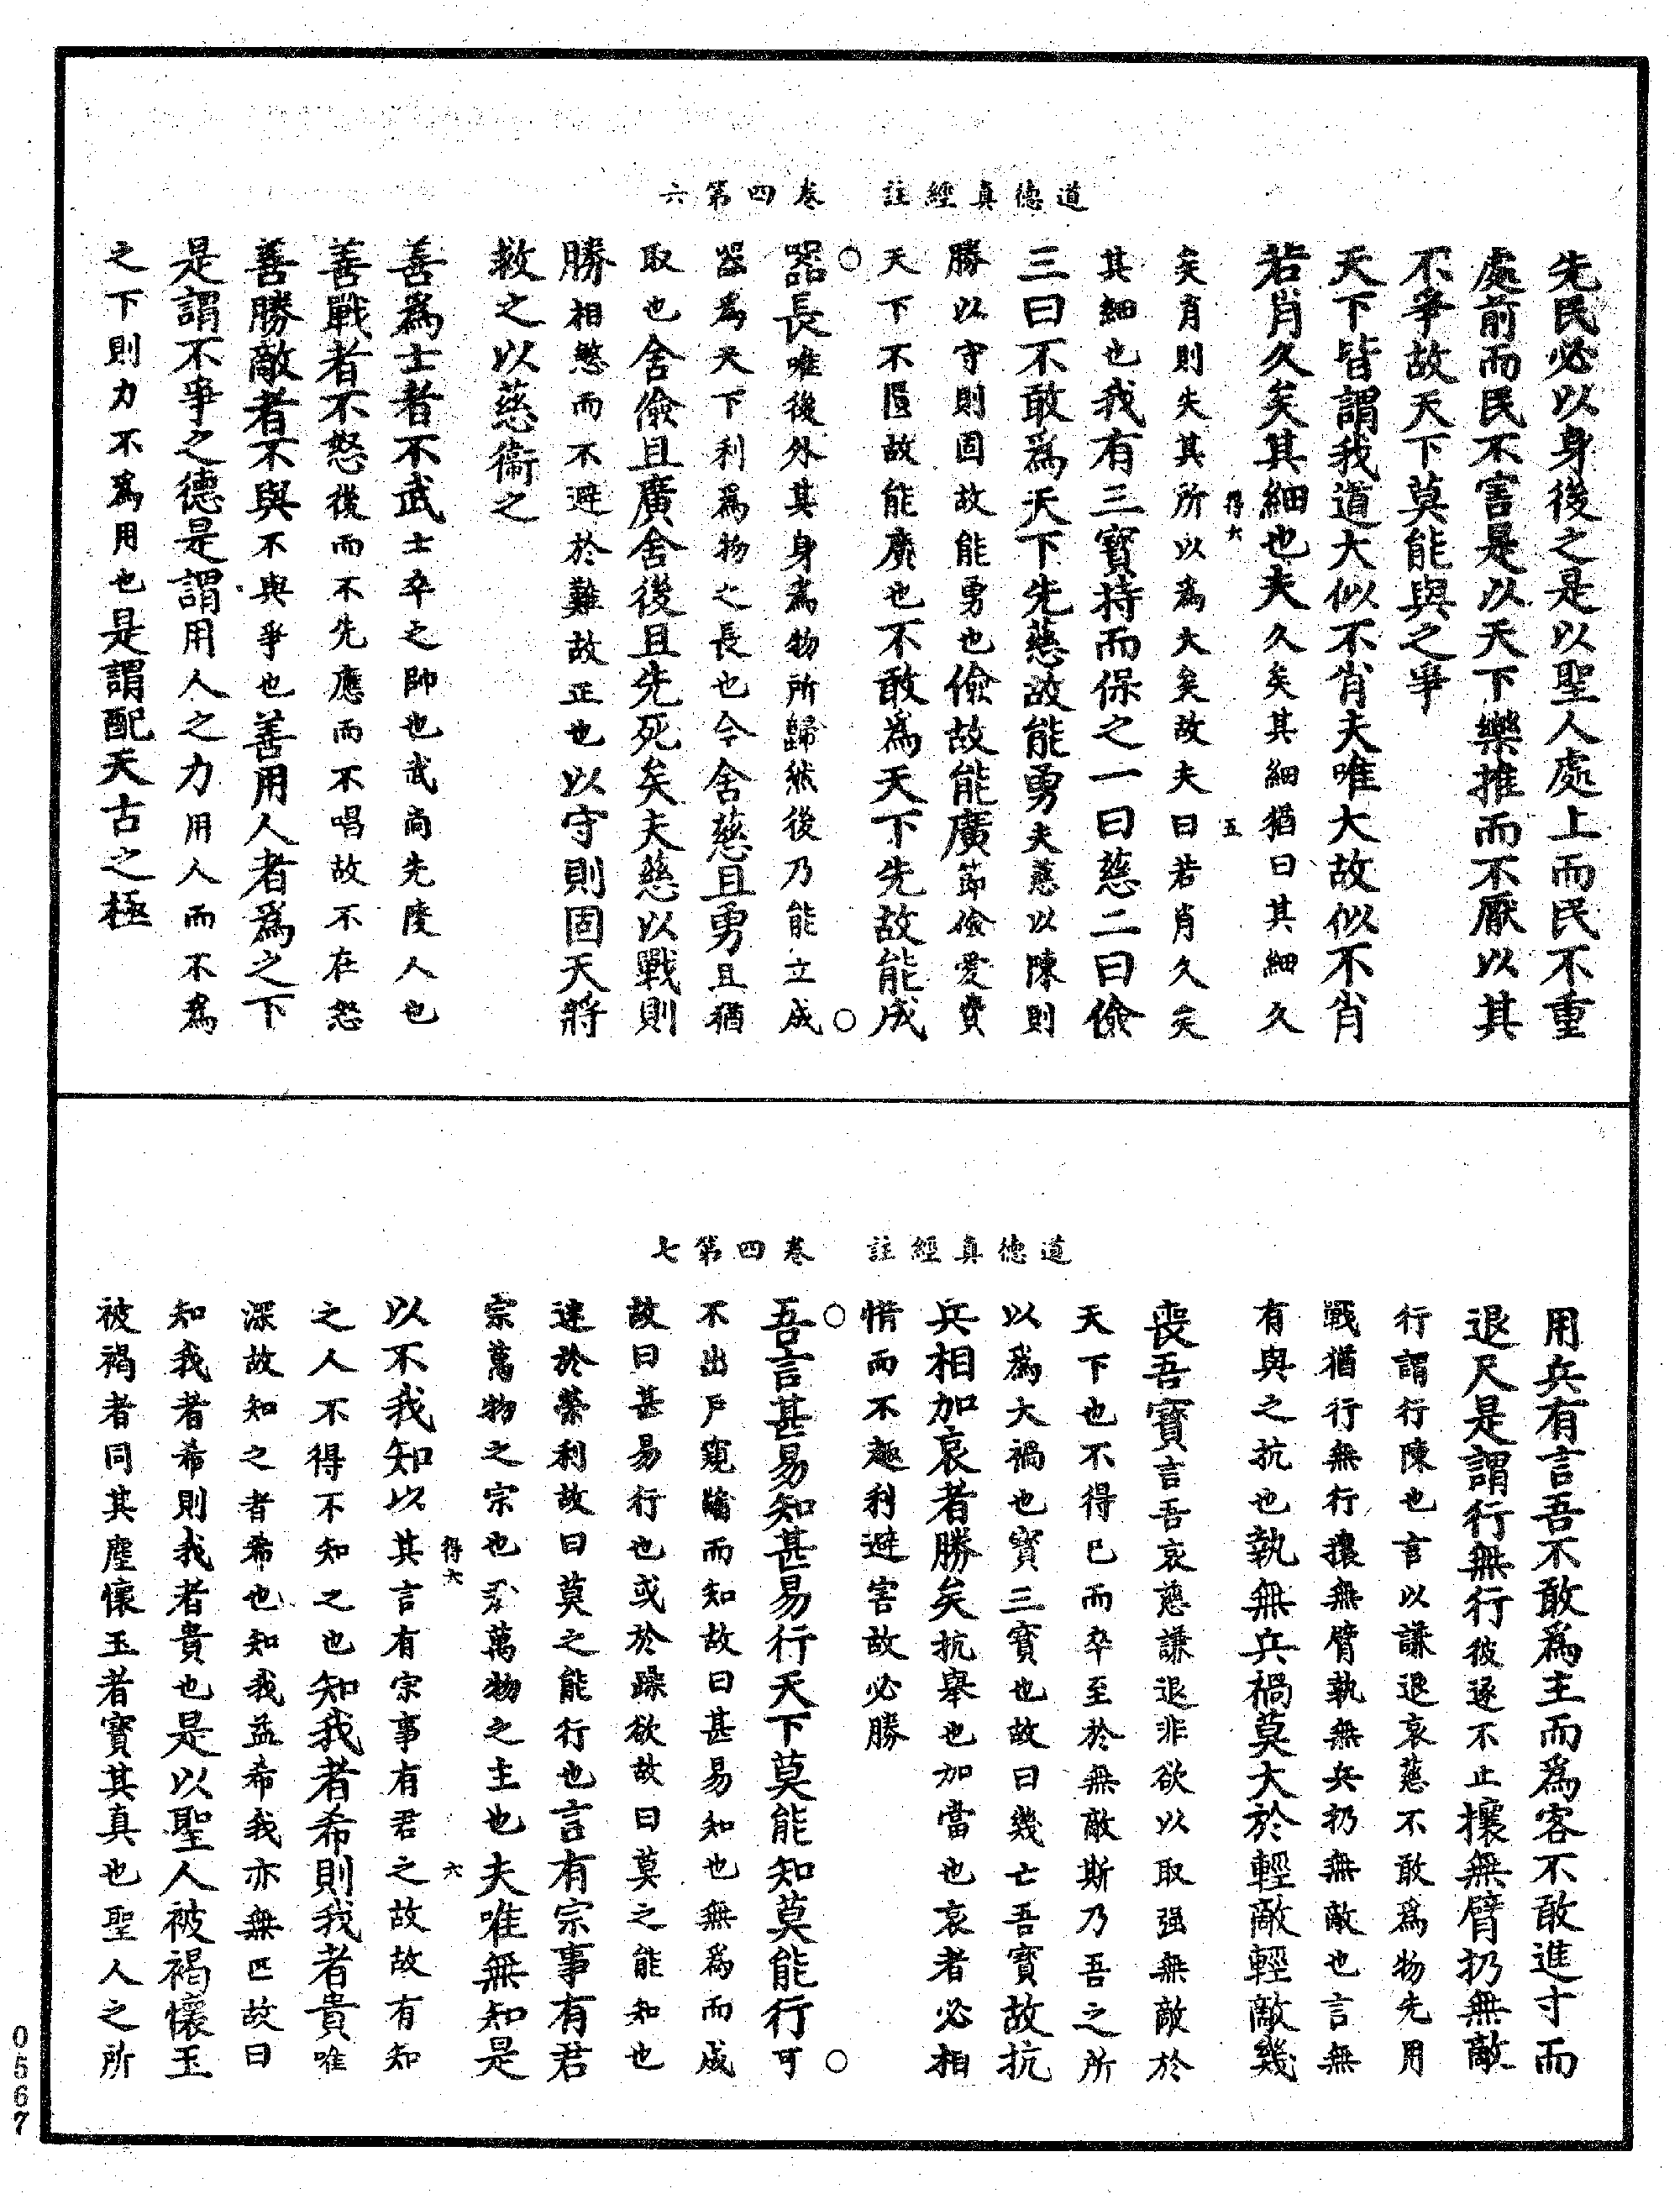 道德真經註　卷四第六
先民必以身後之是以聖人處上而民不重
處前而民不害是以天下樂推而不厭以其
不爭故天下莫能與之爭
天下皆謂我道大似不肖夫唯大故似不肖
若肖久矣其細也夫久矣其細猶曰其細久
得六　五
矣肖則失其所以為大矣故夫曰若肖久矣
其細也我有三寶持而保之一曰慈二曰儉
三曰不敢為天下先慈故能勇夫慈以陳則
勝以守則固故能勇也儉故能廣節儉愛費
天下不匱故能廣也不敢為天下先故能成
器長唯後外其身為物所歸然後乃能立成
器為天下利為物之長也今舍慈且勇且猶
取也舍儉且廣舍後且先死矣夫慈以戰則
勝相慜而不避於難故正也以守則固天將
救之以慈衞之
善為士者不武士卒之帥也武尚先陵人也
善戰者不怒後而不先應而不唱故不在怒
善勝敵者不與不與爭也善用人者為之下
是謂不爭之德是謂用人之力用人而不為
之下則力不為用也是謂配天古之極
道德真經註　卷四第七
用兵有言吾不敢為主而為客不敢進寸而
退尺是謂行無行彼遂不止攘無臂扔無敵
行謂行陳也言以謙退哀慈不敢為物先用
戰猶行無行攘無臂執無兵扔無敵也言無
有與之抗也執無兵禍莫大於輕敵輕敵幾
喪吾寶言吾哀慈謙退非欲以取强無敵於
天下也不得已而卒至於無敵斯乃吾之所
以為大禍也寶三寶也故曰幾亡吾寶故抗
兵相加哀者勝矣抗舉也加當也哀者必相
惜而不趣利避害故必勝
吾言甚易知甚易行天下莫能知莫能行可
不出戶窺牖而知故曰甚易知也無為而成
故曰甚易行也或於躁欲故曰莫之能知也
迷於榮利故曰莫之能行也言有宗事有君
宗萬物之宗也君萬物之主也夫唯無知是
得六　六
以不我知以其言有宗事有君之故故有知
之人不得不知之也知我者希則我者貴唯
深故知之者希也知我益希我亦無匹故曰
知我者希則我者貴也是以聖人被褐懷玉
被褐者同其塵懷玉者寶其真也聖人之所
0567